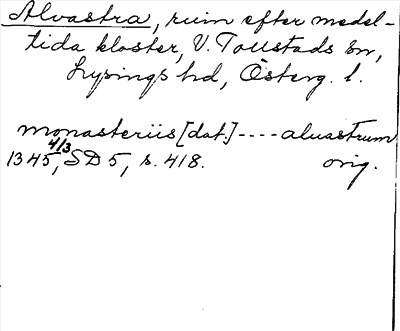 Alvastra, ruin efter medel-
tida kloster, V. Tollstads sn,
Lysings hd, Österg. l.
monasteriis [dat.] ---- aluastrum
1345 4/3, SD 5, s. 418. orig.